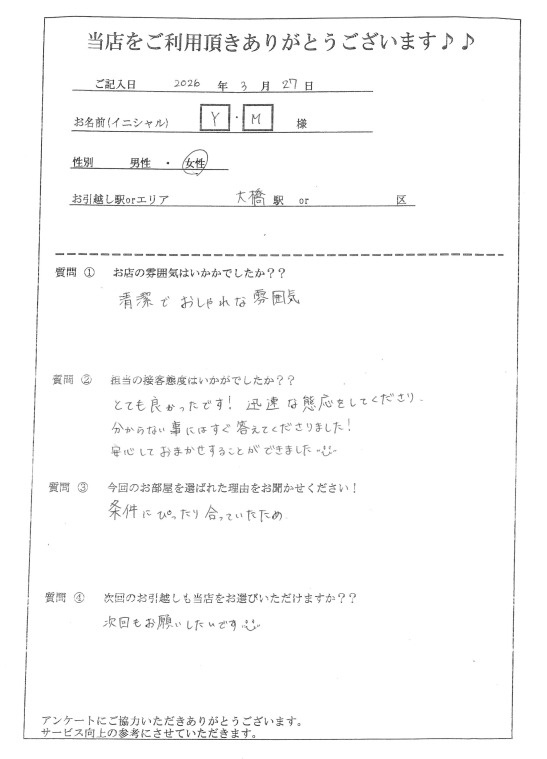 当店をご利用頂きありがとうございます♪♪
ご記入日 2026 年 3 月 27 日
お名前(イニシャル) Y ・ M 様
性別 男性 ・ 女性
お引越し駅orエリア 大橋 駅 or 区
質問 ① お店の雰囲気はいかかでしたか??
清潔で おしゃれな 雰囲気
質問 ② 担当の接客態度はいかがでしたか??
とても良かったです! 迅速な態応をしてくださり、
分からない事にはすぐ答えてくださりました!
安心しておまかせすることができました
質問 ③ 今回のお部屋を選ばれた理由をお聞かせください!
条件にぴったり合っていたため
質問 ④ 次回のお引越しも当店をお選びいただけますか??
次回もお願いしたいです
アンケートにご協力いただきありがとうございます。
サービス向上の参考にさせていただきます。